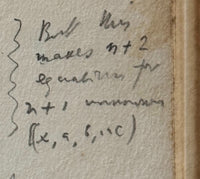 But this
makes n+2
equations for
n+1 unknowns
(x, a, b, c)